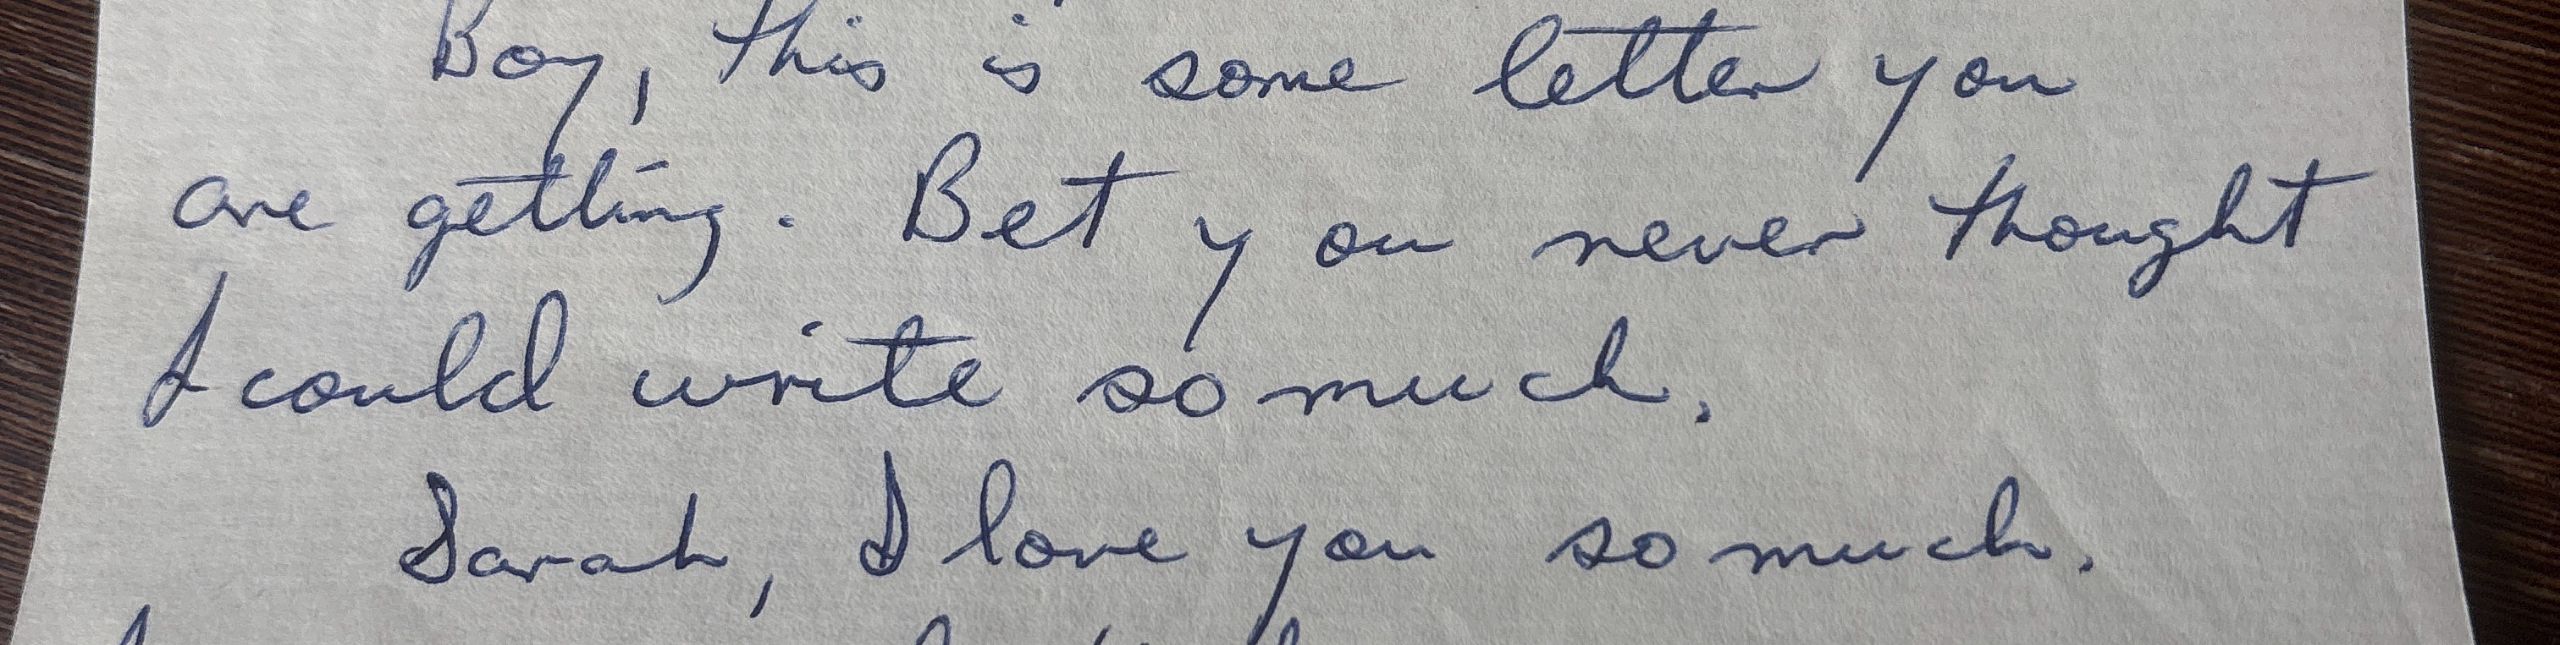 Boy, this is some letter you
are getting. Bet you never thought
I could write so much.
Sarah, I love you so much.